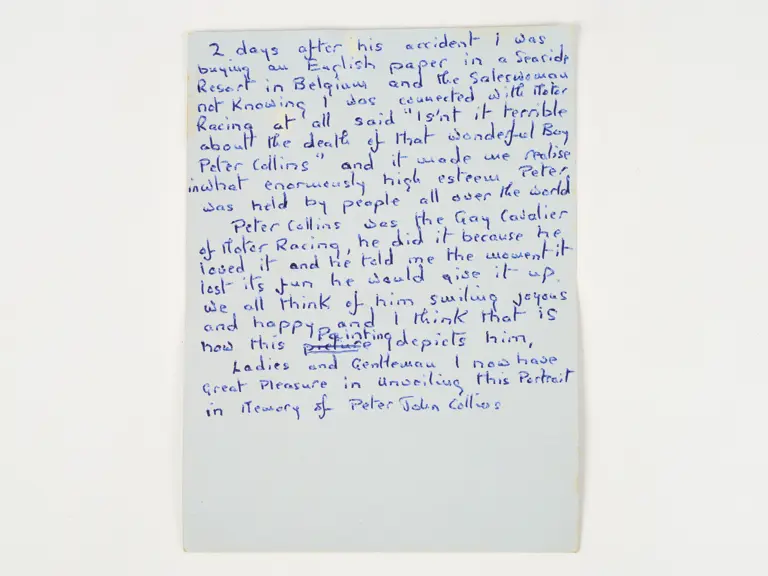 2 days after his accident i was
buying an English paper in a Seaside
Resort in Belgium and the Saleswoman
not Knowing I was connected with Motor
Racing at all said "Is'nt it terrible
about the death of that wonderful Boy
Peter Collins" and it made me realise
in what enormously high esteem Peter,
was held by people all over the world
Peter Collins was the Gay Cavalier
of Motor Racing, he did it because he
loved it and he told me the moment it
lost its fun he would give it up.
we all think of him smiling joyous
and happy and I think that is
how this picture painting depicts him,
Ladies and Gentleman I now have
Great Pleasure in Unveiling this Portrait
in Memory of Peter John Collins